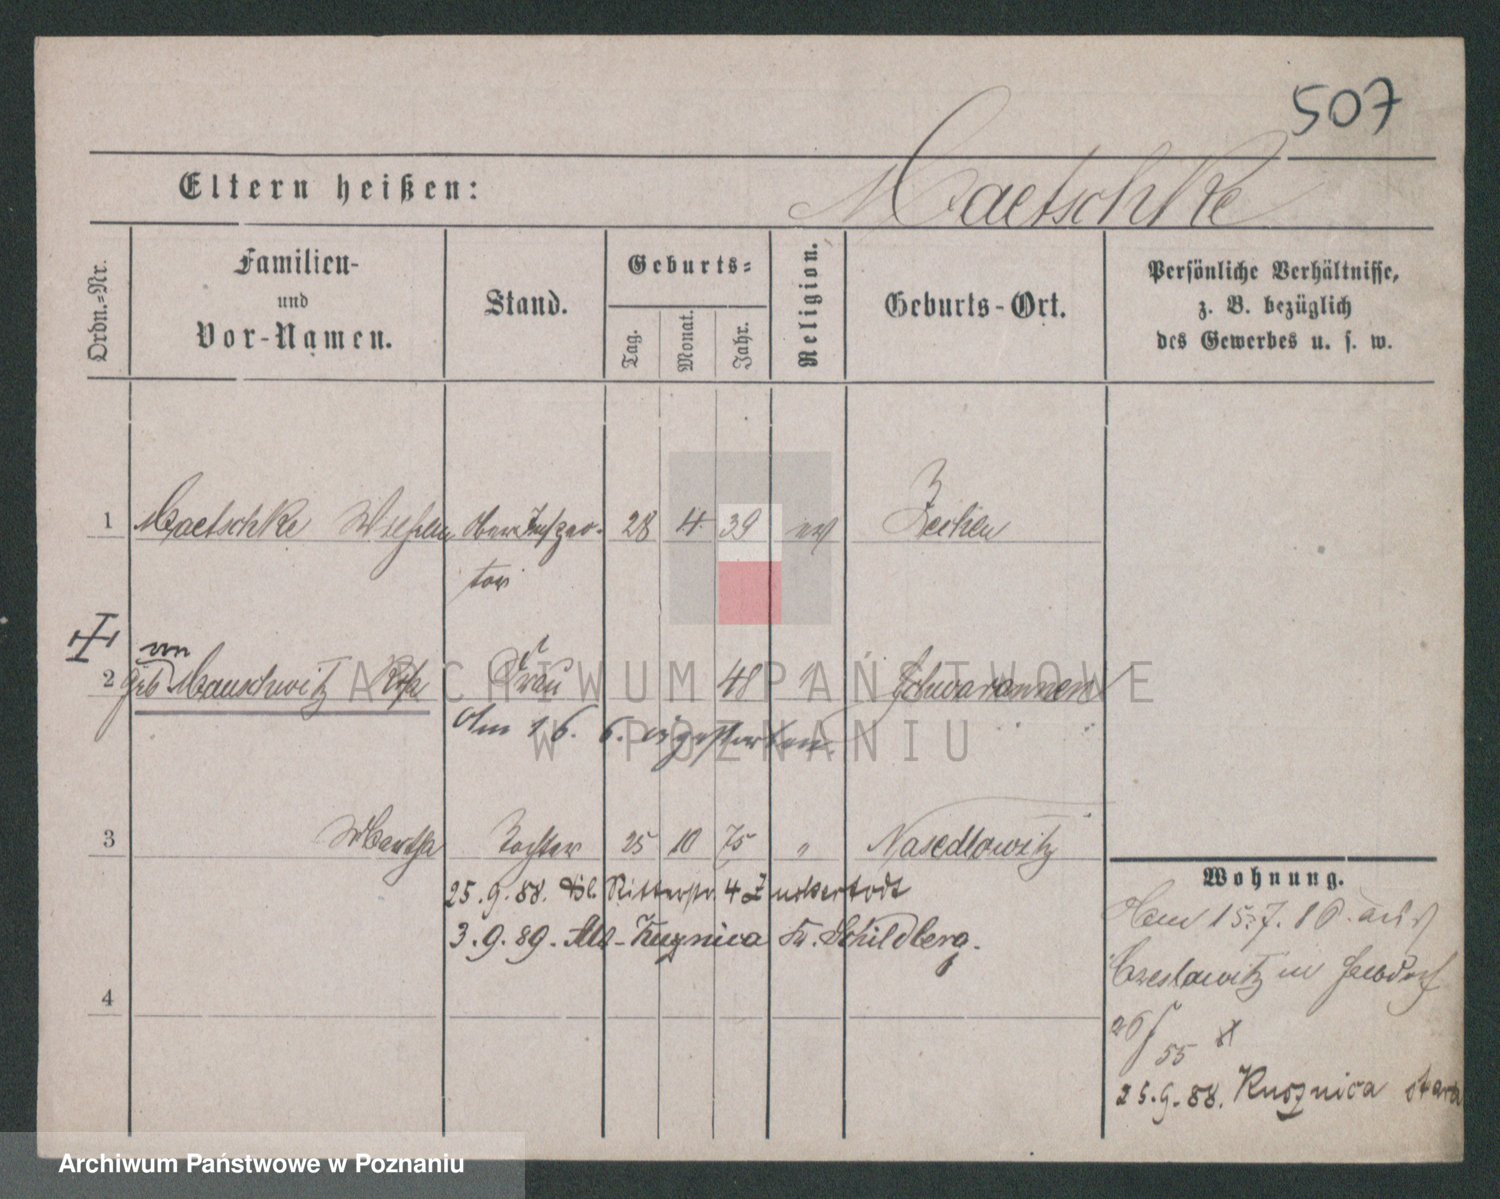 507
Eltern heißen: Maetschke
Ordn.-Nr.
Familien-
und
Vor-Namen.
Stand.
Geburts-
Tag.
Monat.
Jahr.
Religion.
Geburts-Ort.
Persönliche Verhältnisse,
z. B. bezüglich
des Gewerbes u. s. w.
1 Maetschke Wilhelm Ober Inspec-
tor 28 4 39 ev
2 geb von Mauschwitz Frau 48 "
Am 16. 6. gestorben
3 Martha Tochter 25 10 75 " Nasedlowitz
25.9.88. Bl. Ritterstr. 4 Zuckertodt
3.9.89. Alt-Kuznica Kr. Schildberg.
4
Wohnung.
15.7.86. aus
in
26/55
25.9.88. Kuznica stara
ARCHIWUM PAŃSTWOWE
W POZNANIU
Archiwum Państwowe w Poznaniu